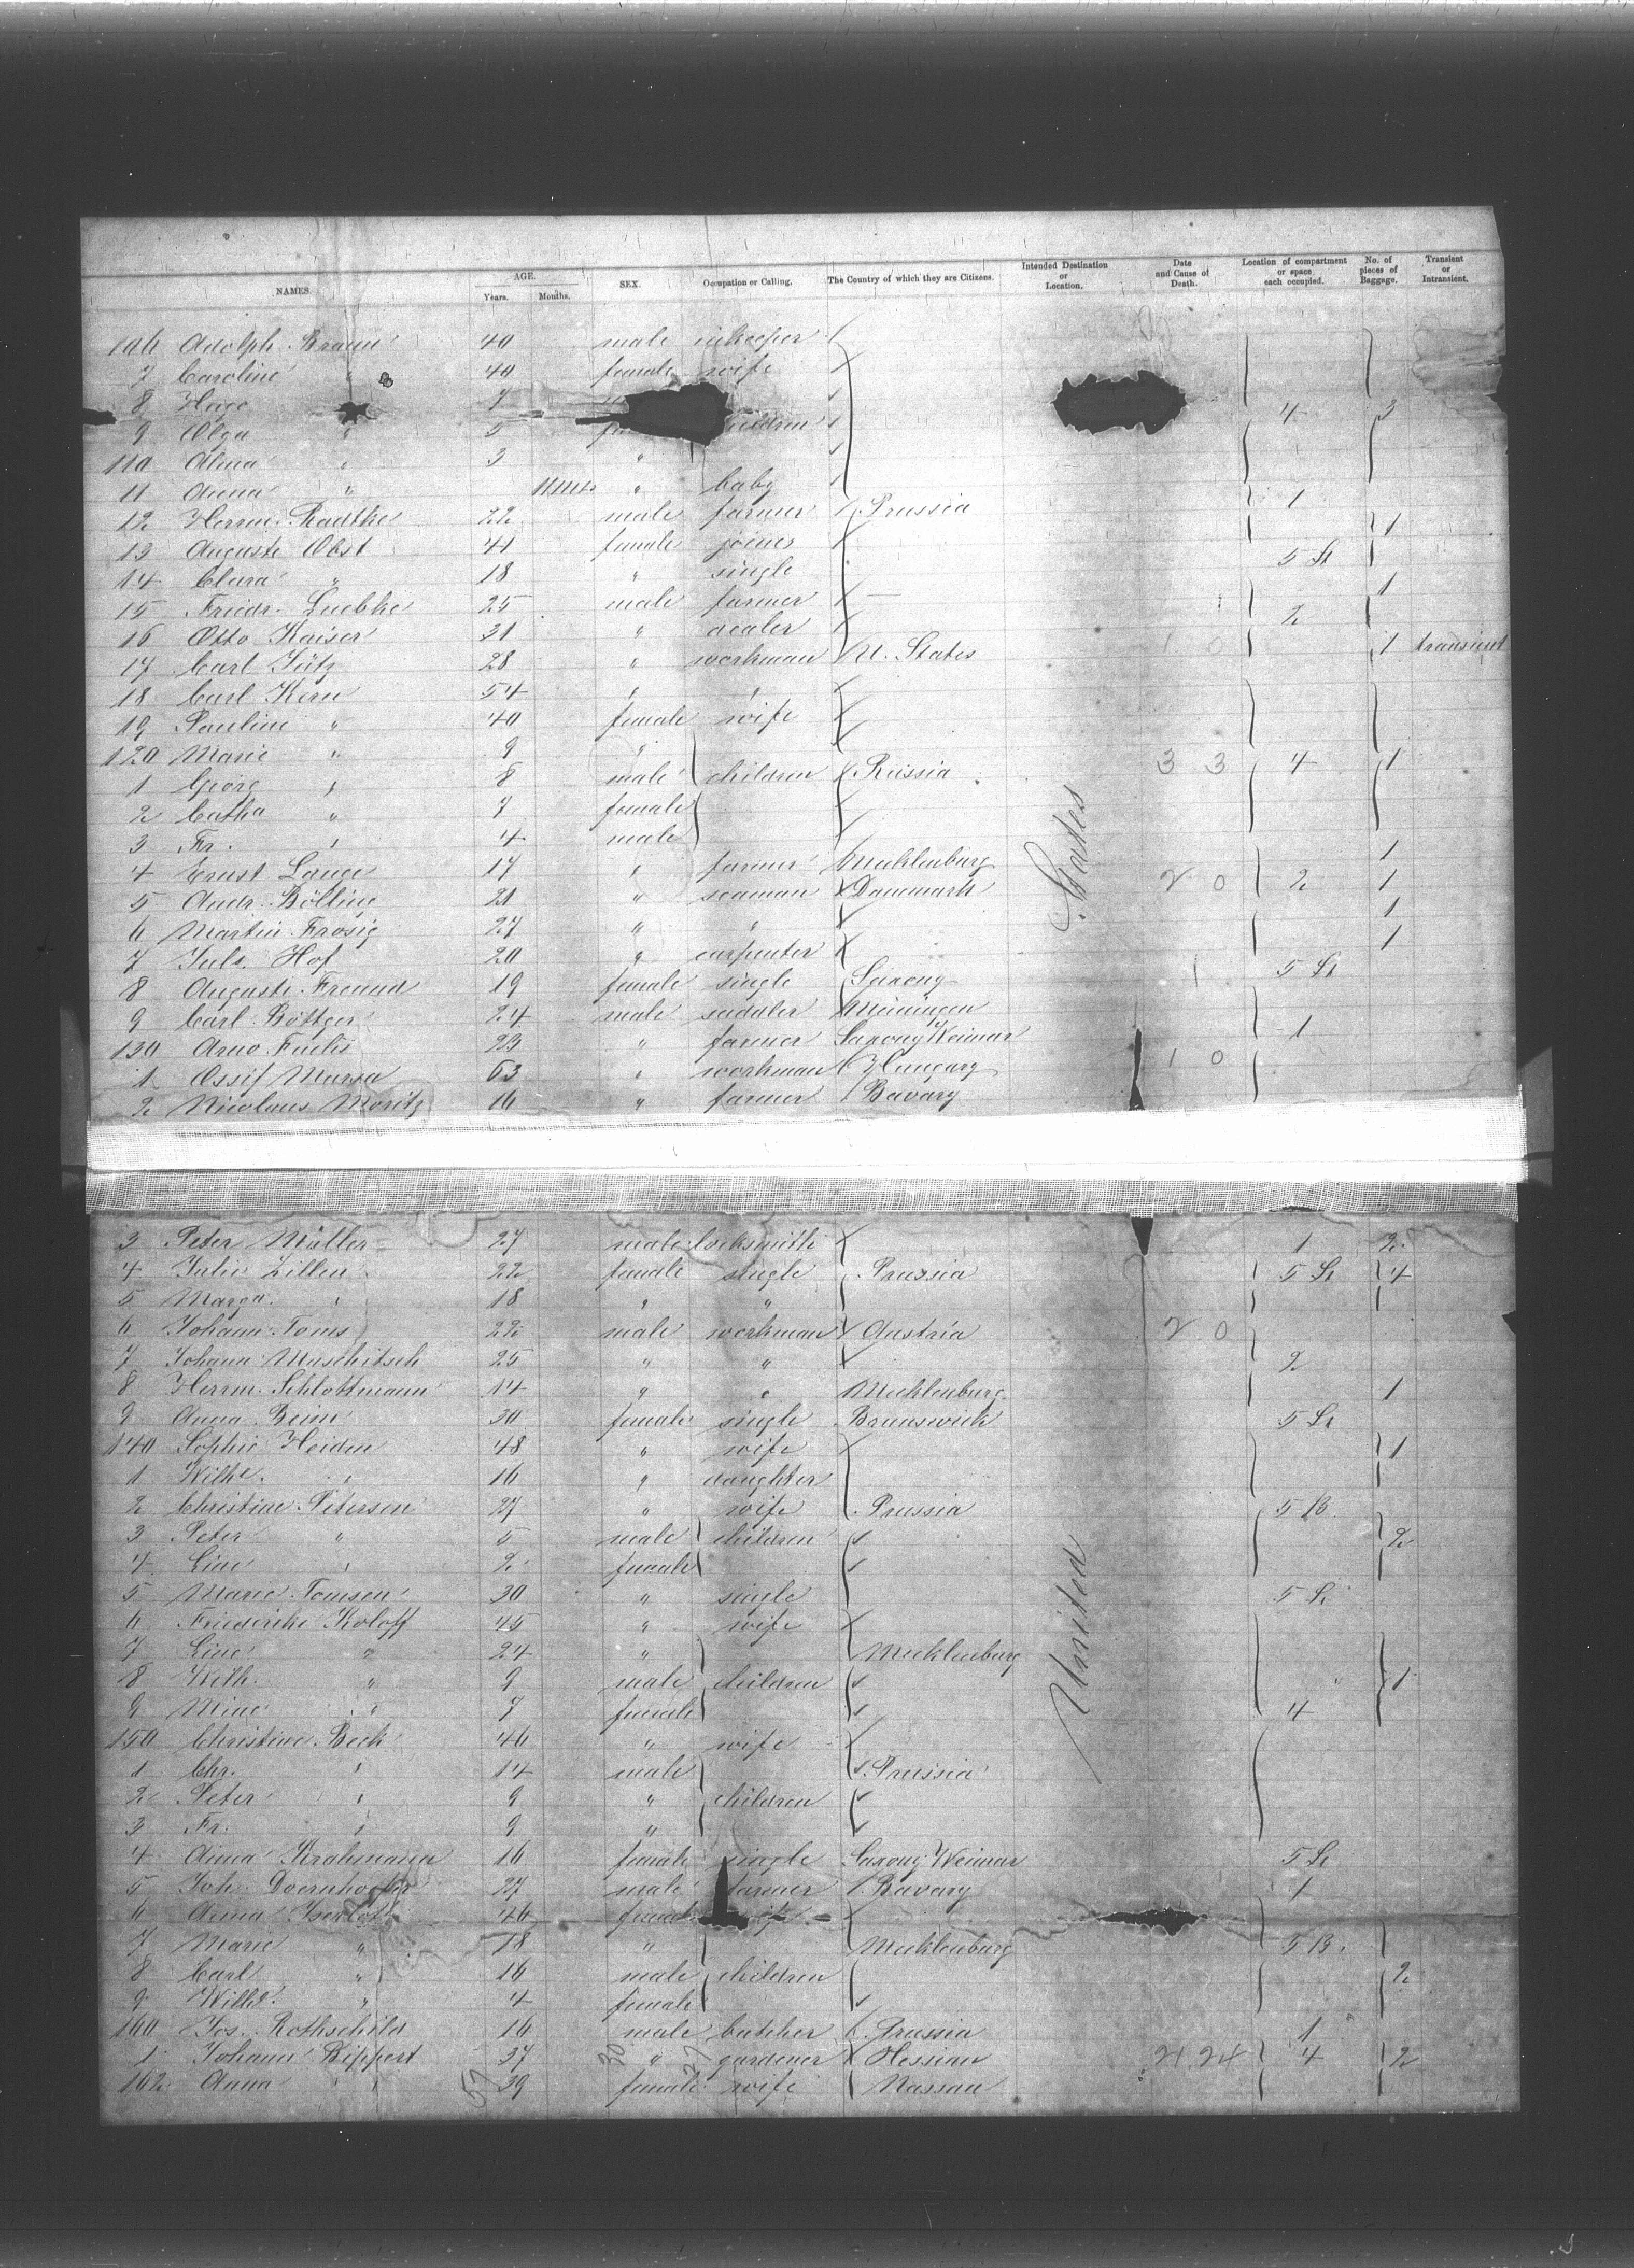 NAMES. AGE. Years. Months. SEX. Occupation or Calling. The Country of which they are Citizens. Intended Destination or Location. Date and Cause of Death. Location of compartment or space each occupied. No. of pieces of Baggage. Transient or Intransient.
106 Adolph Braun 40 male
7 Caroline " 40 female wife
8 7
9 Olga " 5
110 Alma " 3 " 4 3
11 Anna " " baby
12 Herrm. Radtke 22 male farmer Prussia 1
13 Auguste Obst 41 female 1
14 Clara " 18 " single 5 St
15 Friedr. Luebke 25 male farmer 1
16 Otto Kaiser 31 " dealer 2
17 Carl 28 " workman U. States 1 0 1 transient
18 Carl Kern 54 " "
19 Pauline " 40 female wife
120 Marie " 9 "
1 Georg " 8 male children Russia 3 3 4 1
2 Catha " 7 female
3 Fr. " 4 male
4 Ernst Lange 17 " farmer Mecklenburg 1
5 Andr. Bölling 21 " seaman Danmark 2 0 2 1
6 Martin Frosig 27 " " 1
7 Juls. Hof 20 " carpenter 1
8 Auguste Freund 19 female single Saxony 1 5 St
9 Carl Böttger 24 male saddler Meiningen
130 Arno Fuchs 23 " farmer Saxony Weimar 1
1 Ossif 63 " workman Hungary 1 0
2 Nicolaus Moritz 16 " farmer Bavary
3 Peter Müller 27 male locksmith 1 2
4 Julie Zillen 22 female single Prussia 5 St 4
5 Marga. " 18 " "
6 Johann Toms 22 male workman Austria 2 0
7 Johann Muschitsch 25 " " 2
8 Herrm. Schlottmann 14 " " Mecklenburg 1
9 Anna Beim 30 female single Brunswick 5 St
140 Sophie Heiden 48 " wife 1
1 Wilhe. " 16 " daughter
2 Christine Petersen 27 " wife Prussia 5 B.
3 Peter " 5 male children 2
4 Line " 2 female
5 Marie Tomsen 30 " single 5 St
6 Friederike Koloff 45 " wife
7 Line " 24 " Mecklenburg
8 Wilh. " 9 male children 1
9 Mine " 7 female 4
150 Christine Beck 46 " wife
1 Chr. " 14 male Prussia
2 Peter " 9 " children
3 Fr. " 9 "
4 Anna Krahmann 16 female single Saxony Weimar 5 St
5 Joh. 27 male farmer Bavary 1
6 Anna 46 female
7 Marie " 18 " Mecklenburg 5 B.
8 Carl " 16 male children 2
9 Wilhe. " 4 female
160 Jos. Rothschild 16 male butcher Prussia 1
1 Johann Rippert 37 " gardener Hessian 21 24 4 2
162 Anna " 39 female wife Nassau
United States